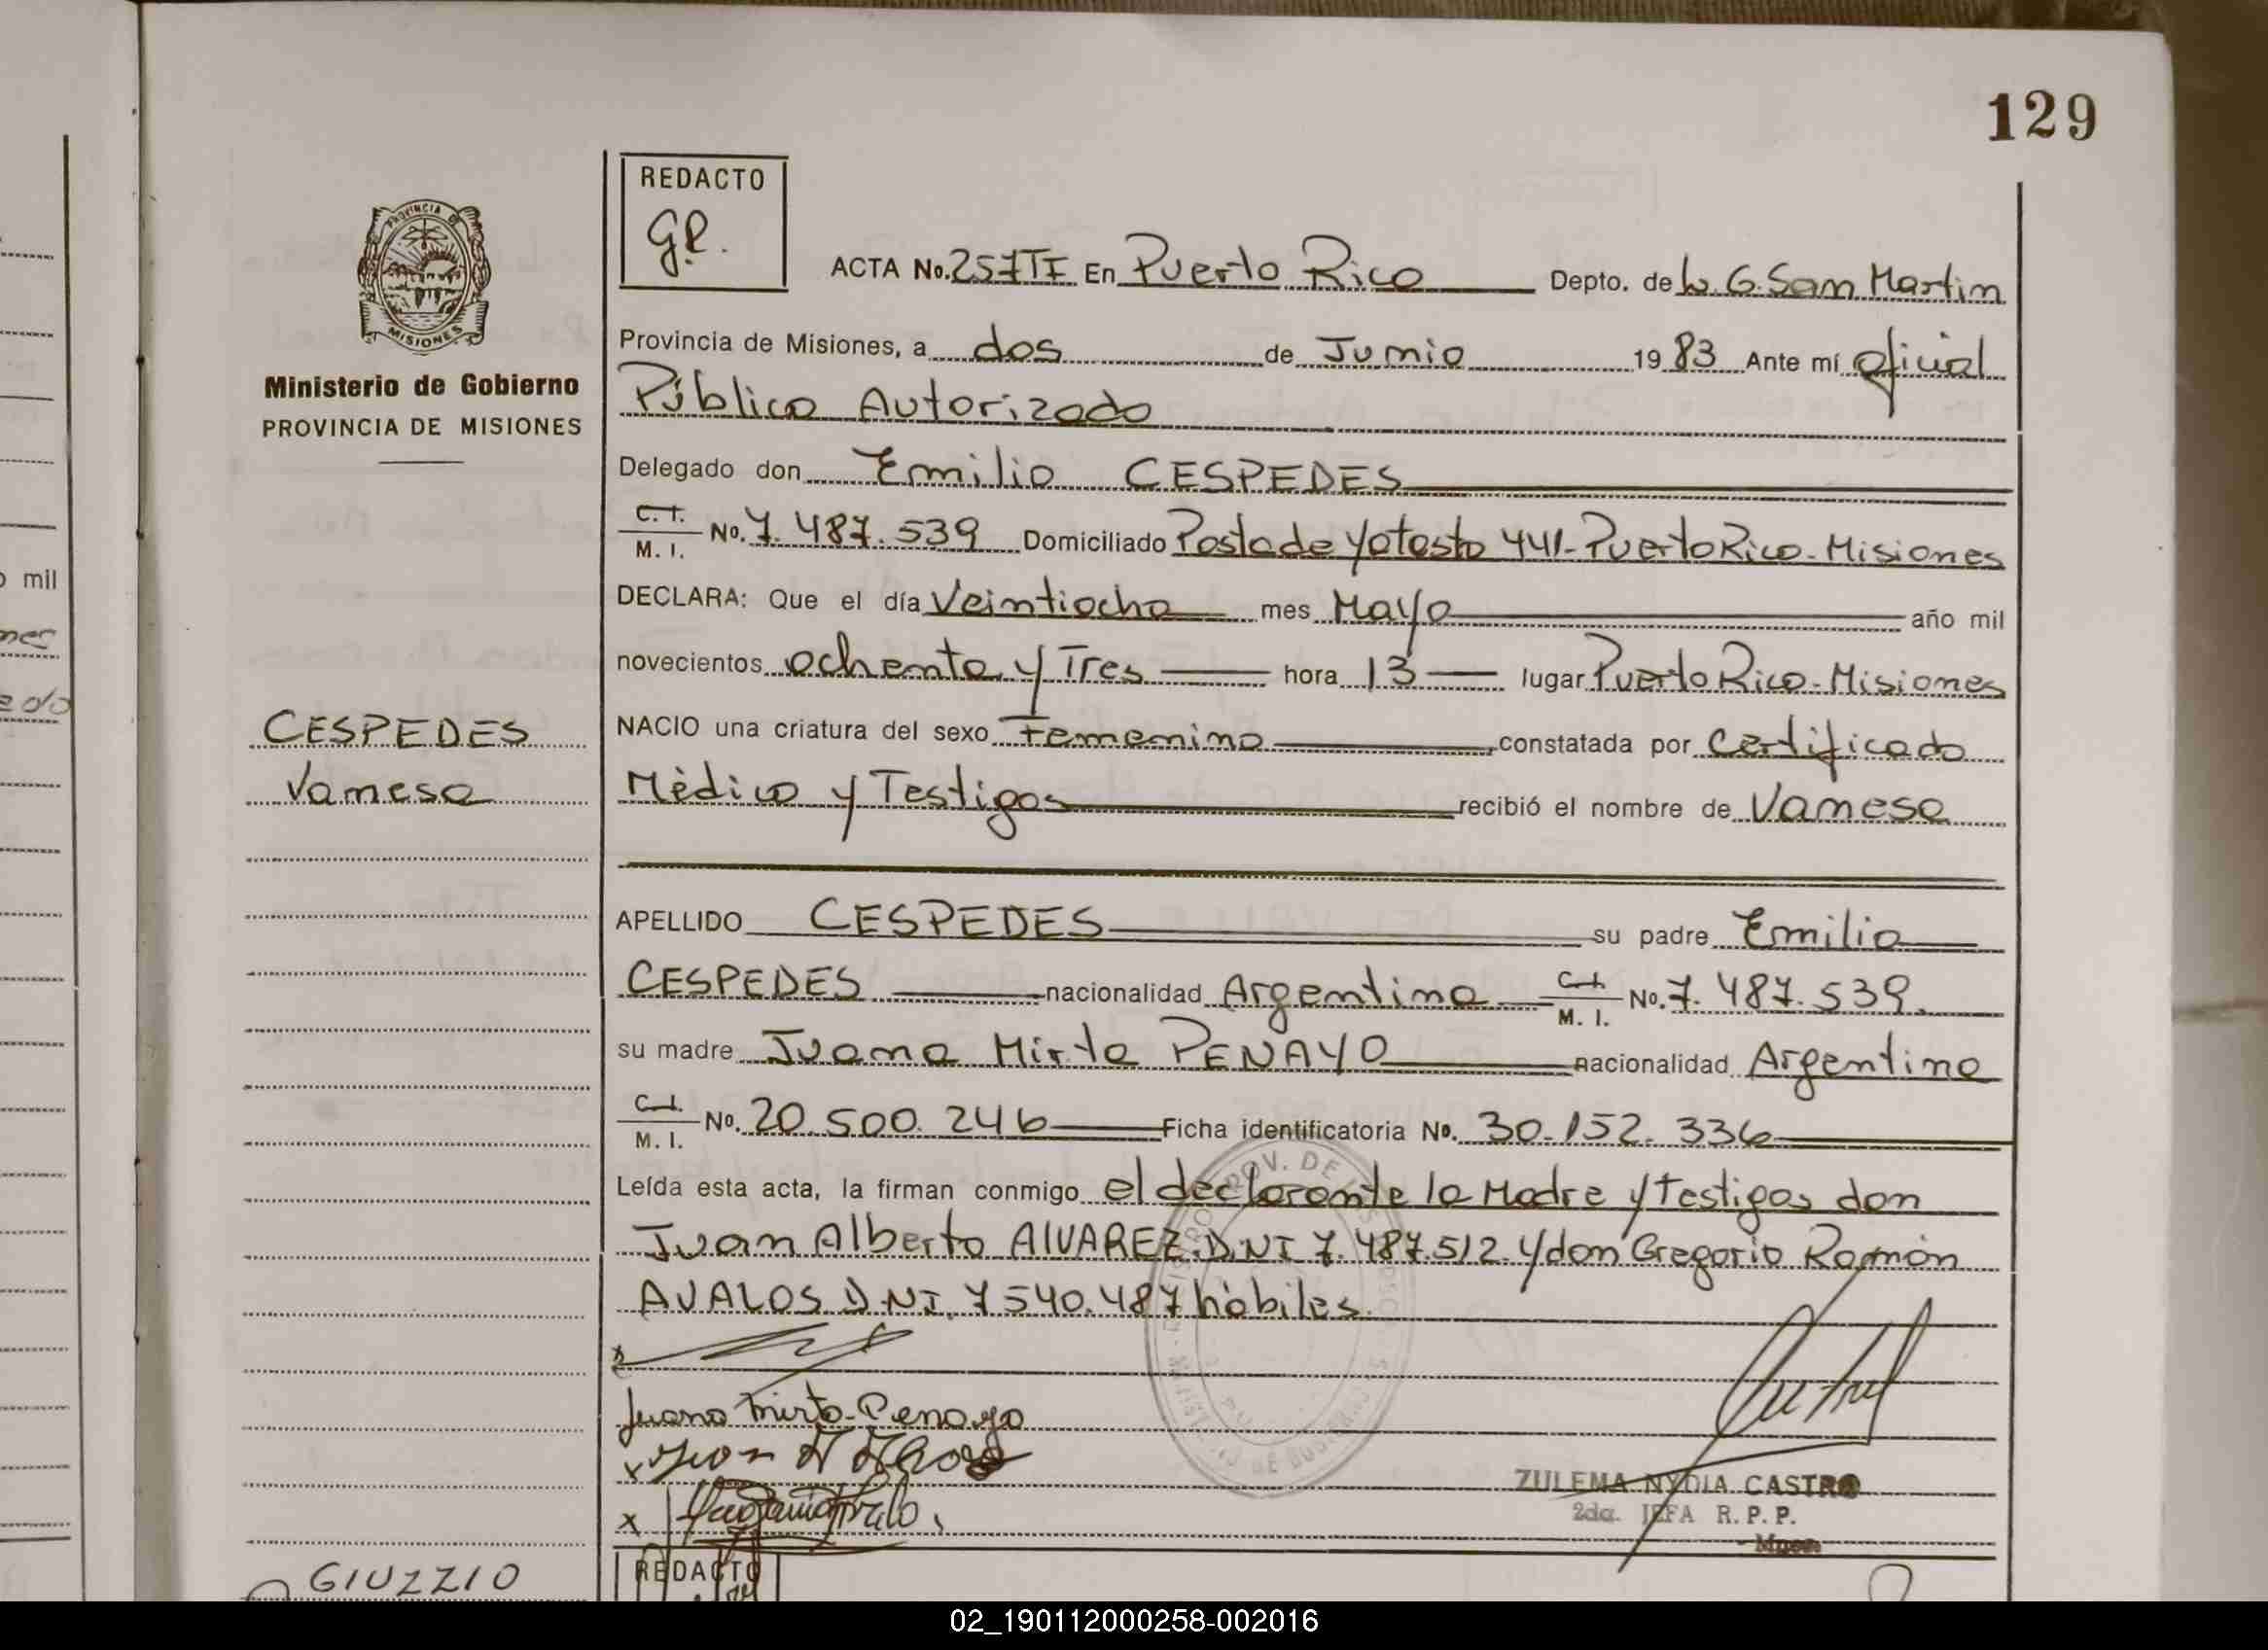 129
REDACTO
G.R.
PROVINCIA DE
MISIONES
Ministerio de Gobierno
PROVINCIA DE MISIONES
ACTA No. 257TI En Puerto Rico Depto. de L. G. San Martin
Provincia de Misiones, a dos de Junio 1983 Ante mí oficial
Público Autorizado
Delegado don Emilio CESPEDES
C.I.
M. I. No. 7.487.539 Domiciliado Posta de Yatasto 441-Puerto Rico-Misiones
DECLARA: Que el día Veintiocho mes Mayo año mil
novecientos ochenta y Tres hora 13 lugar Puerto Rico-Misiones
CESPEDES
Vanesa
NACIO una criatura del sexo Femenino constatada por Certificado
Mèdico y Testigos recibió el nombre de Vanesa
APELLIDO CESPEDES su padre Emilio
CESPEDES nacionalidad Argentina C.I.
M. I. No. 7.487.539.
su madre Juana Mirta PENAYO nacionalidad Argentina
C.I.
M. I. No. 20.500.246 Ficha identificatoria No. 30.152.336
Leída esta acta, la firman conmigo el declarante la Madre y testigos don
Juan Alberto ALVAREZ.D.NI 7.487.512. y don Gregorio Ramón
AVALOS D.NI. 7540.487 hàbiles.
Juana Mirta Penayo
x Juan A
x
ZULEMA NYDIA CASTRO
2da. JEFA R. P. P.
Mnes
PROV. DE
GIUZZIO
REDACTO
mil
02_190112000258-002016